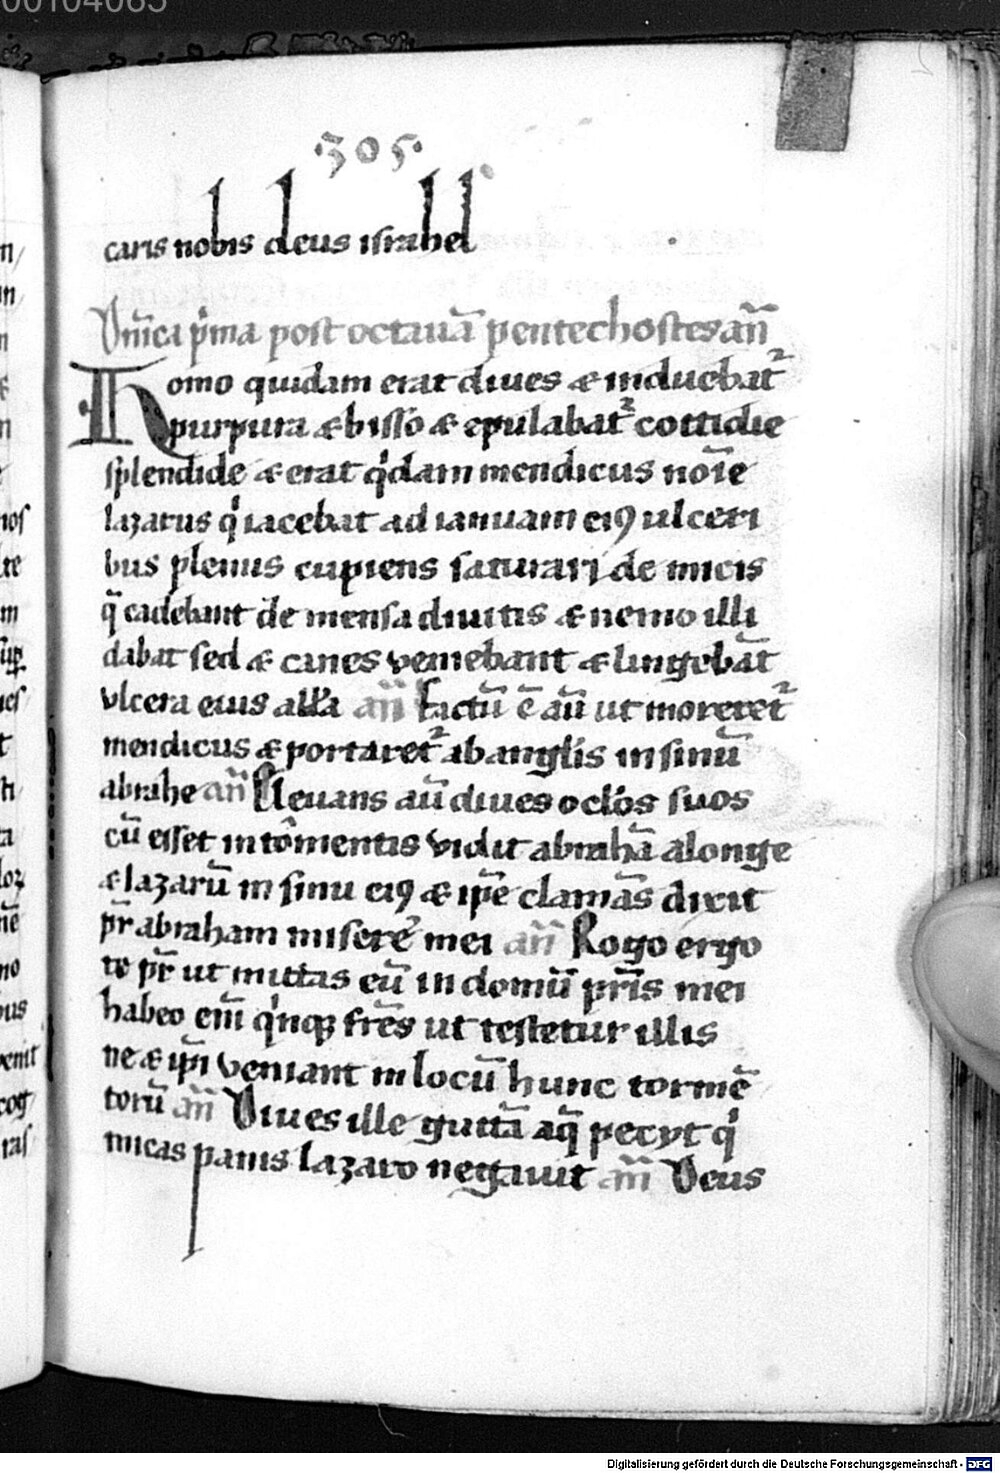 00104065
·305·
caris nobis deus israhel
Dnĩca p̃ma post octauã pentechostes añ
Homo quidam erat diues & induebat᷑
purpura & bisso & epulabat᷑ cottidie
splendide & erat qͥdam mendicus noĩe
lazarus qͥ iacebat ad ianuam eiꝰ ulceri
bus plenus cupiens saturari de micis
q̃ cadebant de mensa diuitis & nemo illi
dabat sed & canes veniebant & lingebãt
vlcera eius all'a añ Factũ ẽ aũ ut moreret᷑
mendicus & portaret᷑ ab anglis in sinũ
abrahe añ Eleuans aũ diues oclõs suos
cũ esset in tõmentis vidit abrahã a longe
& lazarũ in sinu eiꝰ & ip̃e clamãs dixit
pr̃ abraham miserẽ mei añ Rogo ergo
te pr̃ ut mittas eũ in domũ pr̃is mei
habeo eni̅ qͥnqꝫ fr̃es ut testetur illis
ne & ip̃i veniant in locũ hunc tormẽ
torũ añ Diues ille guttã aq̃ petiit qͥ
micas panis lazaro negauit añ Deus
Digitalisierung gefördert durch die Deutsche Forschungsgemeinschaft - DFG